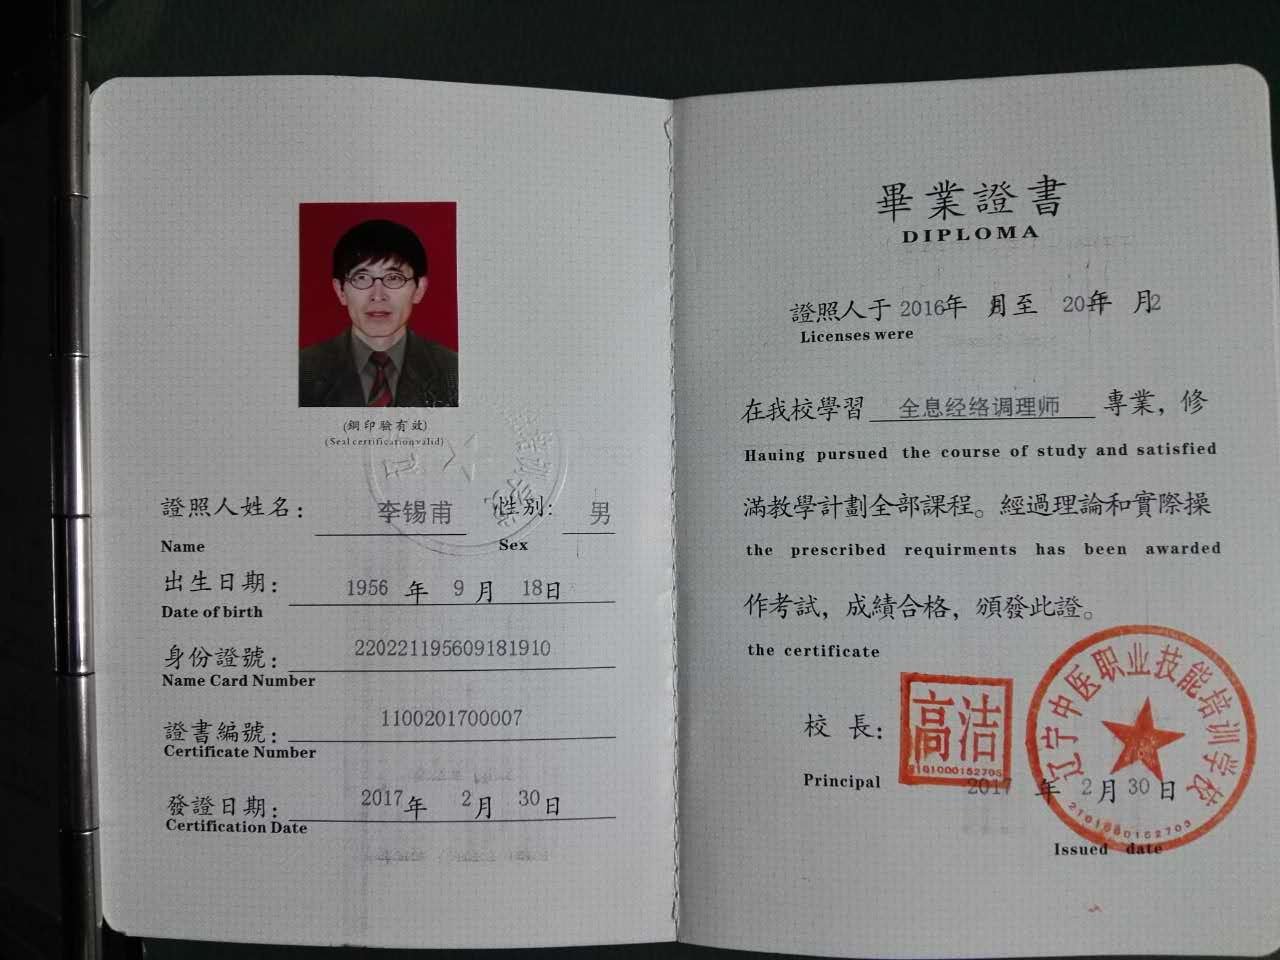 (鋼印驗有效)
(Seal certification valid)
證照人姓名： 李锡甫 性别: 男
Name Sex
出生日期： 1956 年 9 月 18日
Date of birth
身份證號： 220221195609181910
Name Card Number
證書編號： 1100201700007
Certificate Number
發證日期： 2017年 2月 30日
Certification Date
畢業證書
DIPLOMA
證照人于 2016年 月至 20 年 月2
Licenses were
在我校學習 全息经络调理师 專業，修
Hauing pursued the course of study and satisfied
滿教學計劃全部課程。經過理論和實際操
the prescribed requirments has been awarded
作考試，成績合格，頒發此證。
the certificate
校 長： 高洁
2101000152705
Principal
辽宁中医职业技能培训学校
2017 年 2月 30日
2101000152703
Issued date